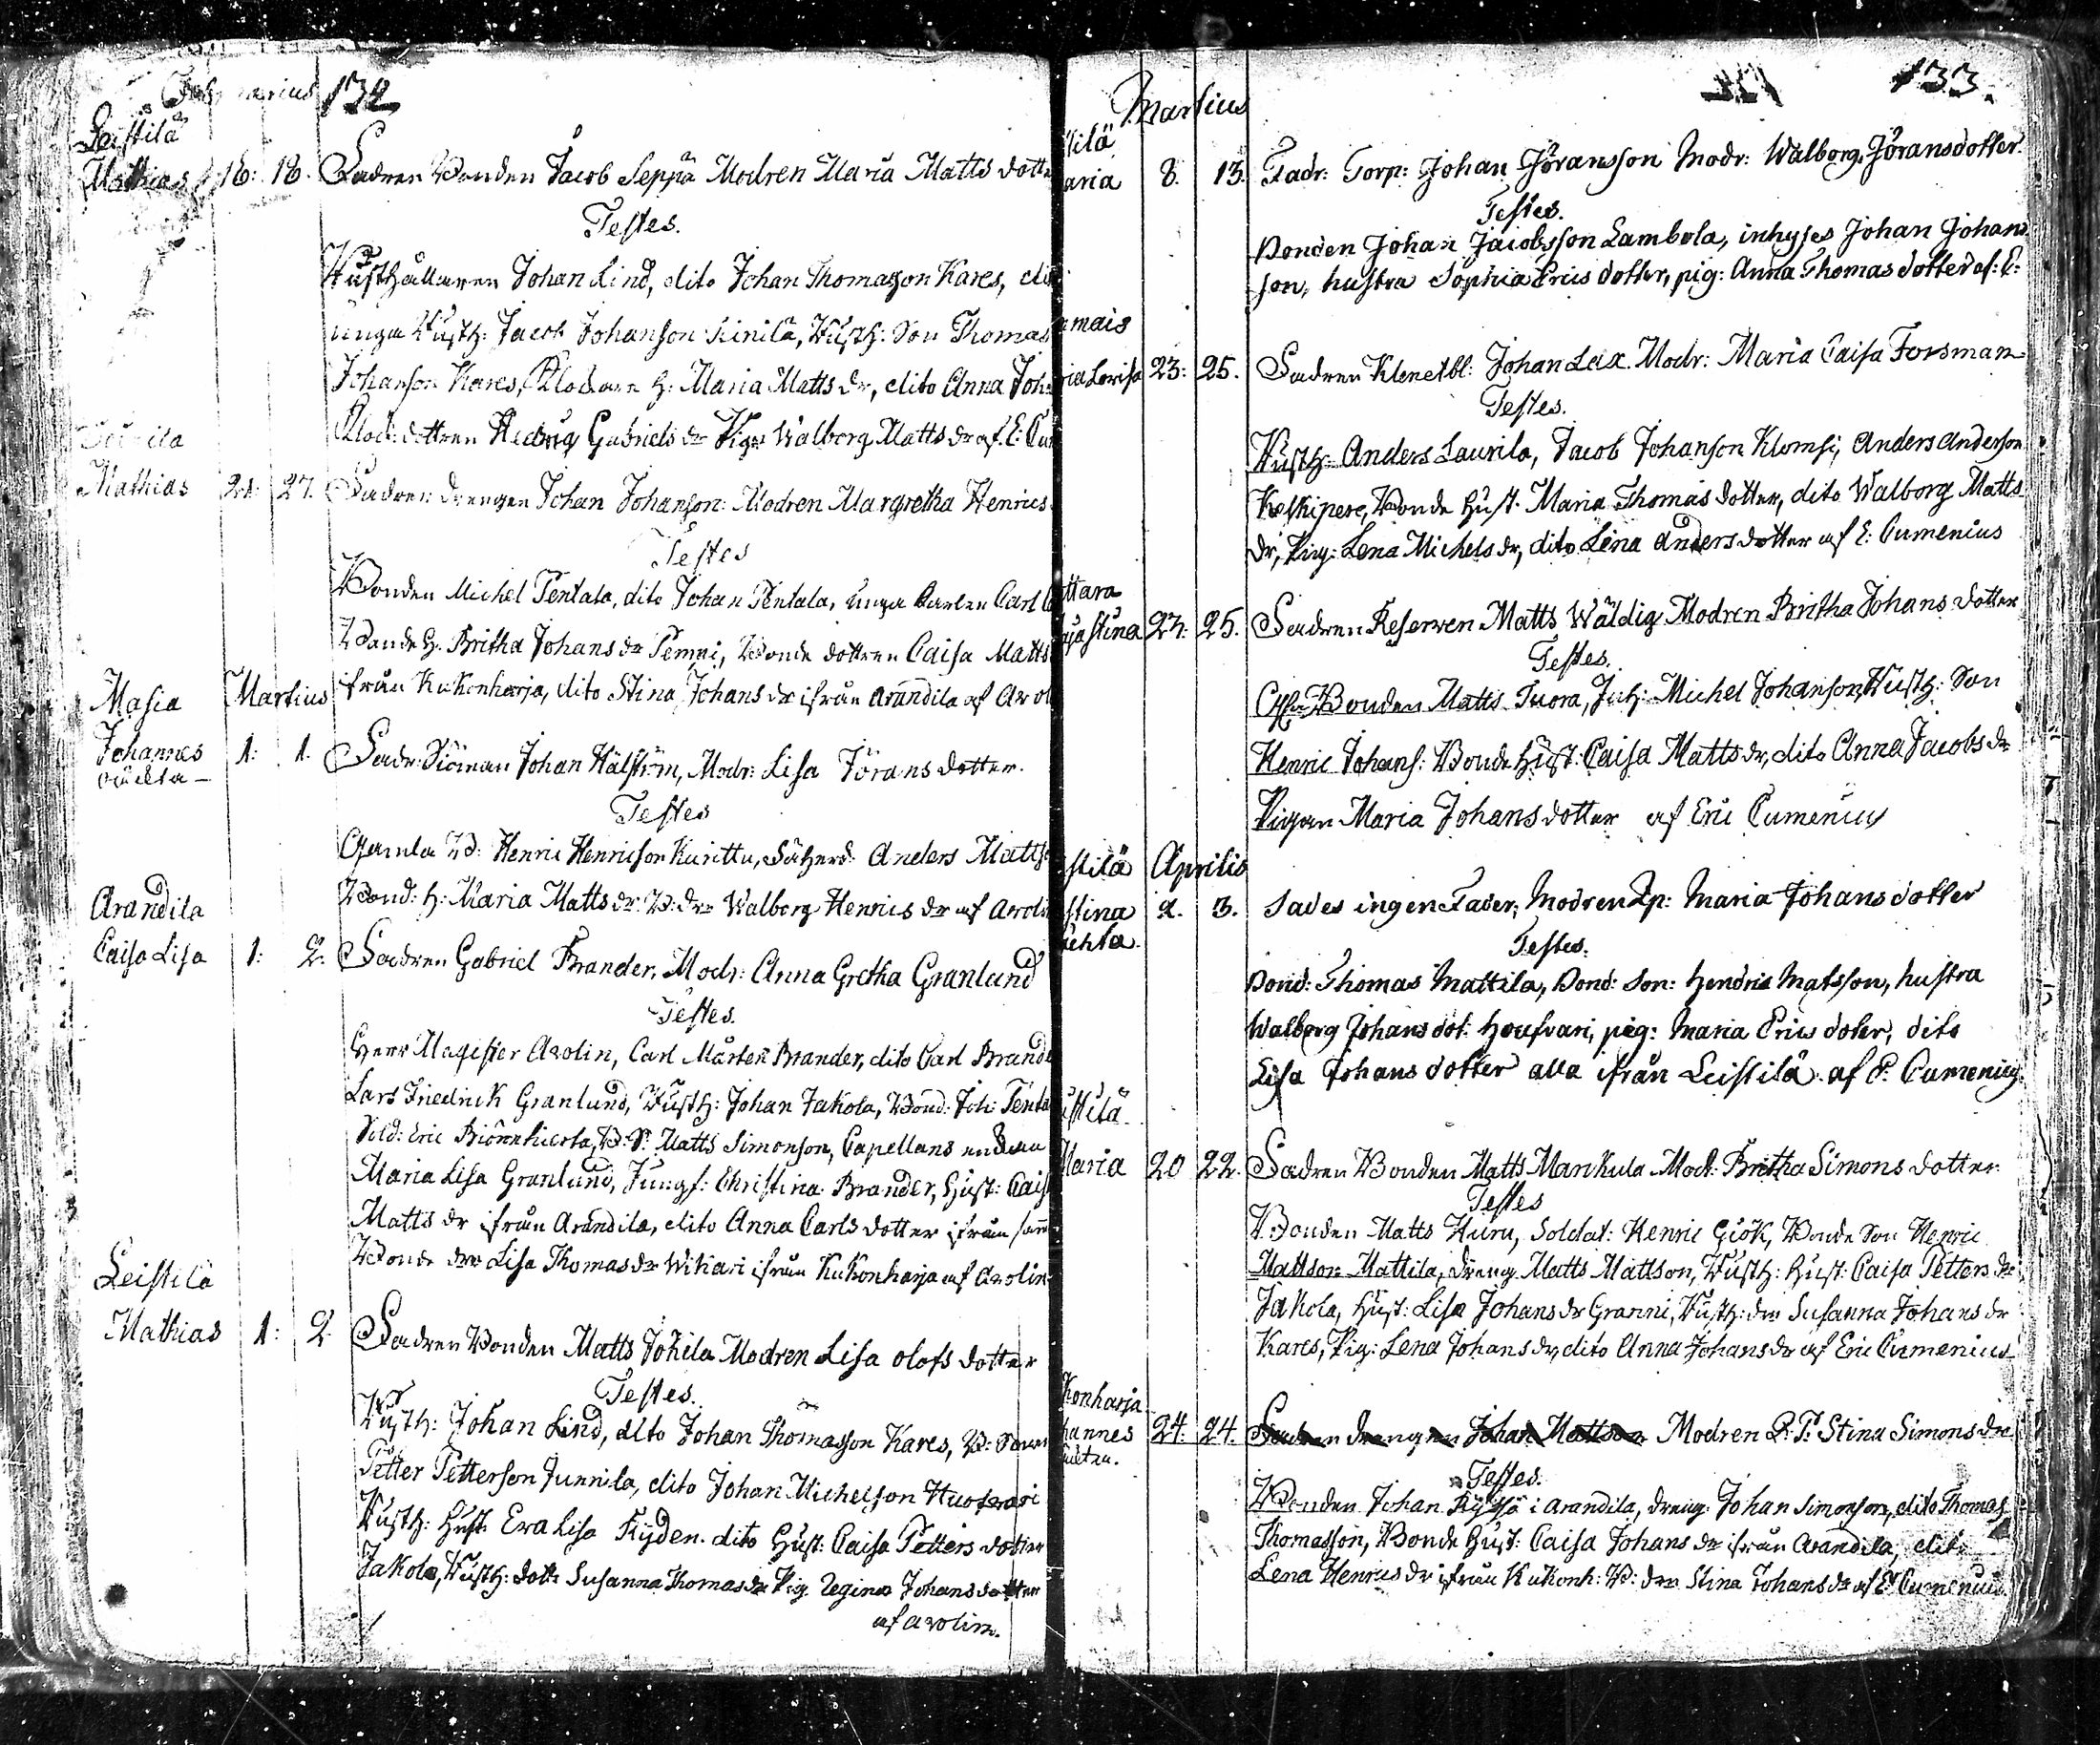 Februarius 132
Leistilä
Mathias 16: 18. Fadren Bonden Jacob Seppä Modren Maria Matts dotte
Testes.
Rusthållaren Johan Lind, dito Johan Thomasson Kares, dito
unga Rusth: Jacob Johanson Kinilä, Rusth: Son Thomas
Johanson Kares, Klockare H: Maria Matts dr, dito Anna Joh
Klock: dottren Hedvig Gabriels dr Pigr Walborg Matts dr af E: Cu
Mathias 21: 27. Fadren drengen Johan Johanson: Modren Margretha Henrics
Testes
Bonden Michel Pentala, dito Johan Pentala, unga Karlen Carl
Bonde H. Britha Johans dr Pempi, Bonde dottren Caisa Matts
ifrån Kukonharja, dito Stina Johans dr ifrån Arandila af Avol
Masia Martius
Johannes 1: 1. Fadr: Siöman Johan Hälström, Modr: Lisa Jörans dotter.
oäckta -
Testes
Gamla B: Henric Henricson Kurittu, Anders Matts
Bond: H: Maria Matts dr B: dr Walborg Henrics dr af Avoli
Arandila
Caisa Lisa 1: 2. Fadren Gabriel Brander, Modr: Anna Gretha Granlund
Testes.
Herr Magister Avolin, Carl Mårten Brander, dito Carl Brande
Lars Friedrick Granlund, Rusth: Johan Jakola, Bond: Joh: Penta
Sold: Eric Biörnhierta, B: S: Matts Simonson, Capellans enckan
Maria Lisa Granlund, Jungf: Christina Brander, Hust: Cais
Matts dr ifrån Arandila, dito Anna Carls dotter ifrån sam
Bonde dr Lisa Thomas dr Wikari ifrån Kukonharja af Avolin
Leistilä
Mathias 1: 2. Fadren Bonden Matts Johila Modren Lisa Olofs dotter
Testes.
Rusth: Johan Lind, dito Johan Thomasson Kares, B: Sonen
Petter Petterson Junnila, dito Johan Michelson Huofvari
Rusth: Hust: Eva Lisa Ryden. dito Hust: Caisa Petters dotter
Jakola, Rusth: dott: Susanna Thomas dr Pig Regina Johans dotter
af Avolin.
Martius 133.
tilä
aria 8. 13. Fadr: Torp: Johan Jöransson Modr: Walborg Jöransdotter.
Testes.
Bonden Johan Jacobsson Lambola, inhyses Johan Johans
son, hustra Sophia Erics dotter, pig: Anna Thomas dotter af: C:
mais
ria Lovisa 23: 25. Fadren Klenetbl: Johan Lax. Modr: Maria Caisa Forsman
Testes.
Rusth: Anders Laurila, Jacob Johanson Klomsi, Anders Anderson
Kelhipere, Bonde Hust. Maria Thomas dotter, dito Walborg Matts
dr, Pig: Lena Michels dr, dito Lena Anders dotter af E: Cumenius
ttara
stina 23: 25. Fadren Reserven Matts Wäldig Modren Britha Johans dotter
Testes.
Bonden Matts Tuora, Inh: Michel Johanson, Rusth: Son
Henric Johans: Bonde Hust: Caisa Matts dr, dito Anna Jacobs dr
Pigan Maria Johans dotter af Eric Cumenius
stilä Aprilis
stina 2. 3. Sades ingen Fader, Modren Qp: Maria Johans dotter
ächta.
Testes.
Bond: Thomas Mattila, Bond: Son: Hendric Matsson, hustra
Walborg Johans dot: Houfvari, pig: Maria Erics doter, dito
Lisa Johans dotter alla ifrån Leistilä af E. Cumenius.
istilä
Maria 20 22. Fadren Bonden Matts Mankula Mod: Britha Simons dotter
Testes
Bonden Matts Huru, Soldat: Henric Giök, Bonde Son Henric
Mattson Mattila, Dreng Matts Mattson, Rusth: Hust: Caisa Petters dr
Jakola, Hust: Lisa Johans dr Granni, Rusth: dr Susanna Johans dr
Kares, Pig: Lena Johans dr, dito Anna Johans dr af Eric Cumenius
konharja
hannes 24: 24. Fadren drengen Johan Mattson Modren Q: P: Stina Simons dr
Testes.
Bonden Johan Kyttä i Arandila, dreng: Johan Simonson, dito Thomas
Thomasson, Bonde Hust: Caisa Johans dr ifrån Arandila, dito
Lena Henrics dr ifrån Kukonh: B: dr Stina Johans dr af E: Cumenius